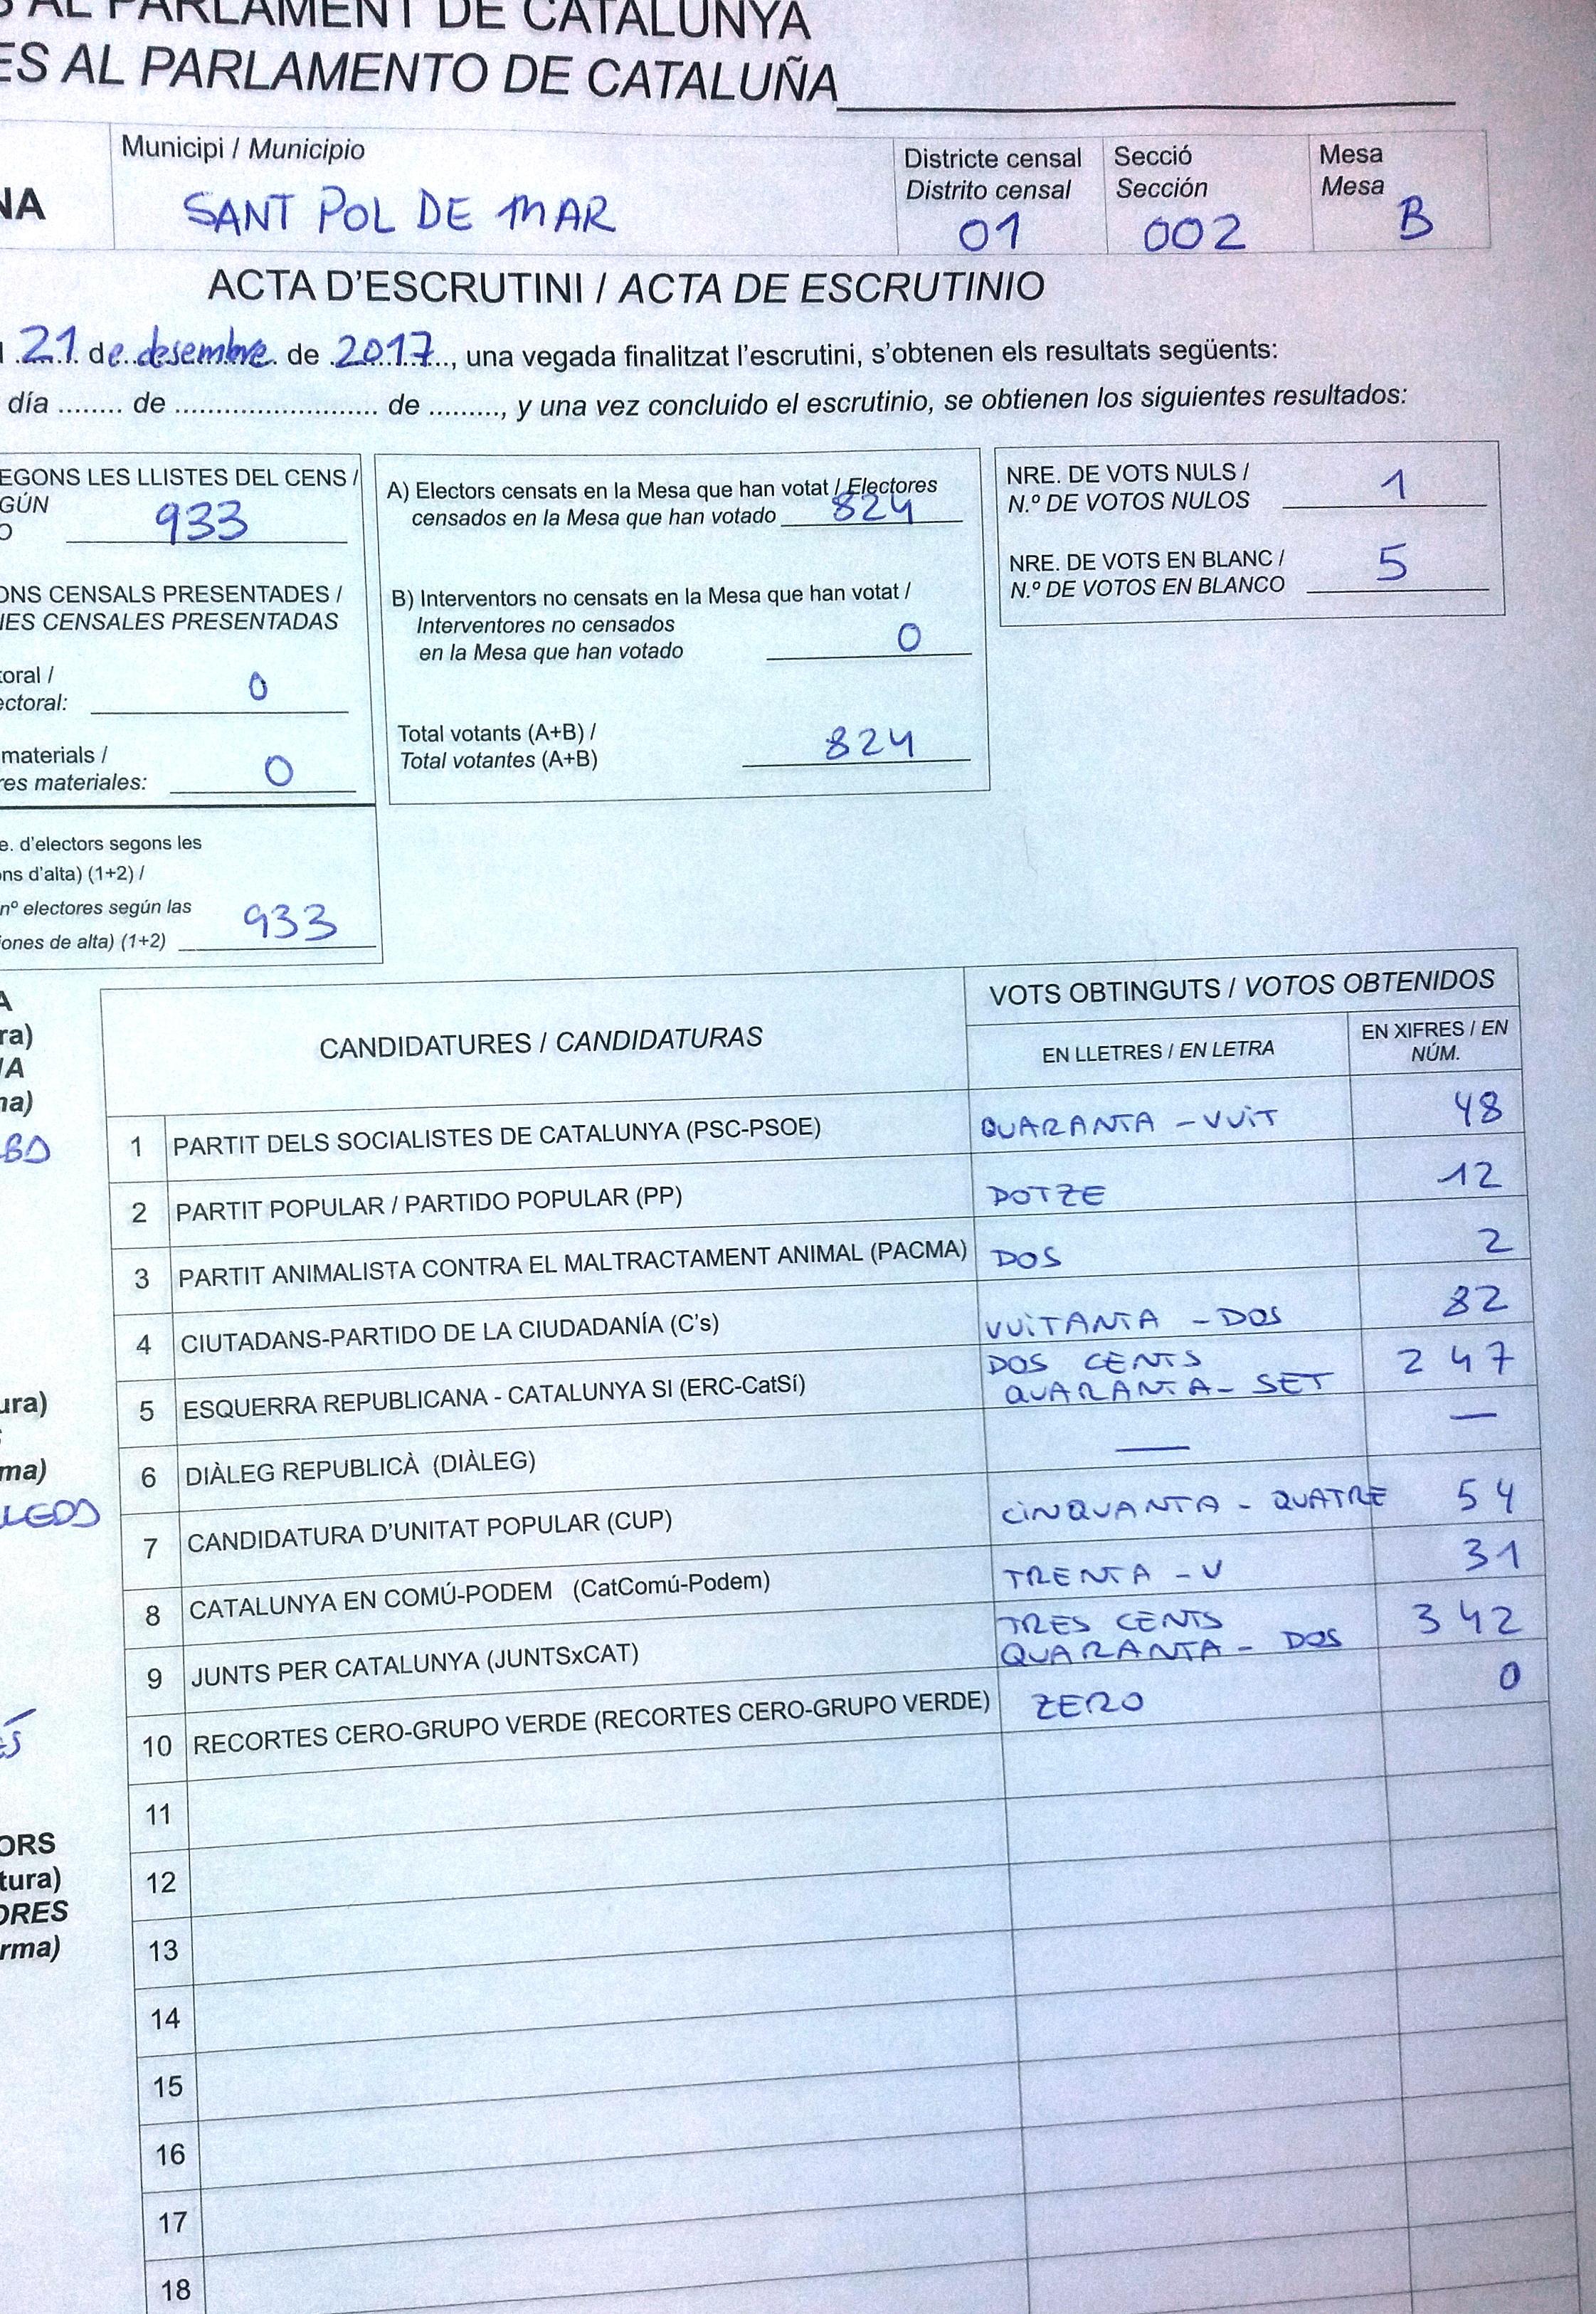 S AL PARLAMENT DE CATALUNYA
ES AL PARLAMENTO DE CATALUÑA
NA
Municipi / Municipio
SANT POL DE MAR
Districte censal
Distrito censal
01
Secció
Sección
002
Mesa
Mesa
B
ACTA D'ESCRUTINI / ACTA DE ESCRUTINIO
21 de desembre de 2017, una vegada finalitzat l'escrutini, s'obtenen els resultats següents:
día ........ de .......................... de ........., y una vez concluido el escrutinio, se obtienen los siguientes resultados:
EGONS LES LLISTES DEL CENS /
GÚN
O 933
ONS CENSALS PRESENTADES /
NES CENSALES PRESENTADAS
toral /
ectoral: 0
materials /
res materiales: 0
e. d'electors segons les
ns d'alta) (1+2) /
nº electores según las
iones de alta) (1+2) 933
A) Electors censats en la Mesa que han votat / Electores
censados en la Mesa que han votado 824
B) Interventors no censats en la Mesa que han votat /
Interventores no censados
en la Mesa que han votado 0
Total votants (A+B) /
Total votantes (A+B) 824
NRE. DE VOTS NULS /
N.º DE VOTOS NULOS 1
NRE. DE VOTS EN BLANC /
N.º DE VOTOS EN BLANCO 5
A
ra)
/A
na)
ura)
ma)
LEDS
ORS
tura)
ORES
rma)
CANDIDATURES / CANDIDATURAS
VOTS OBTINGUTS / VOTOS OBTENIDOS
EN LLETRES / EN LETRA
EN XIFRES / EN
NÚM.
1 PARTIT DELS SOCIALISTES DE CATALUNYA (PSC-PSOE) QUARANTA - VUIT 48
2 PARTIT POPULAR / PARTIDO POPULAR (PP) DOTZE 12
3 PARTIT ANIMALISTA CONTRA EL MALTRACTAMENT ANIMAL (PACMA) DOS 2
4 CIUTADANS-PARTIDO DE LA CIUDADANÍA (C's) VUITANTA - DOS 82
5 ESQUERRA REPUBLICANA - CATALUNYA SI (ERC-CatSí) DOS CENTS
QUARANTA - SET 247
6 DIÀLEG REPUBLICÀ (DIÀLEG) — —
7 CANDIDATURA D'UNITAT POPULAR (CUP) CINQUANTA - QUATRE 54
8 CATALUNYA EN COMÚ-PODEM (CatComú-Podem) TRENTA - U 31
9 JUNTS PER CATALUNYA (JUNTSxCAT) TRES CENTS
QUARANTA - DOS 342
10 RECORTES CERO-GRUPO VERDE (RECORTES CERO-GRUPO VERDE) ZERO 0
11
12
13
14
15
16
17
18